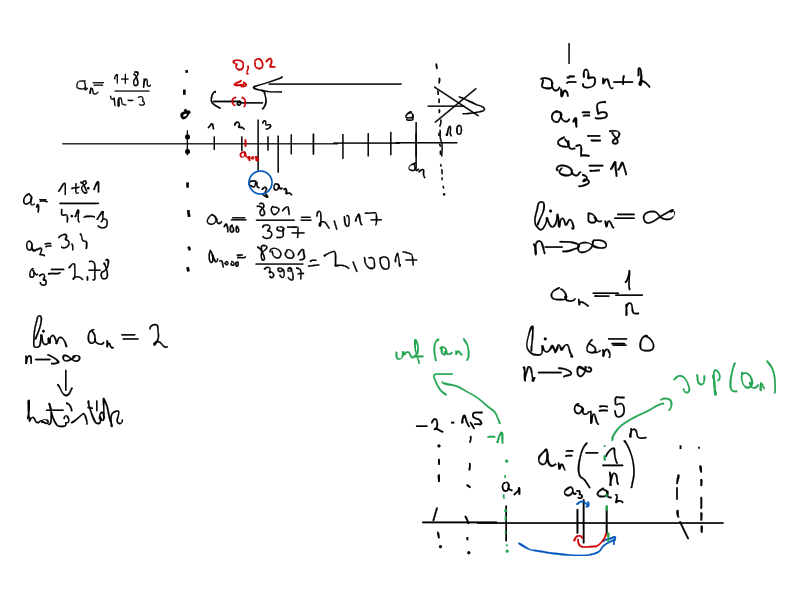 aₙ = (1+8n)/(4n-3)
0,02
1 2 3 10
a₁₀₀
a₃ a₂ a₁
a₁ = (1+8·1)/(4·1-3)
a₂ = 3,4
a₃ = 2,78
a₁₀₀ = 801/397 = 2,017
a₁₀₀₀ = 8001/3997 = 2,0017
lim aₙ = 2
n→∞
határérték
aₙ = 3n+2
a₁ = 5
a₂ = 8
a₃ = 11
lim aₙ = ∞
n→∞
aₙ = 1/n
lim aₙ = 0
n→∞
aₙ = 5
aₙ = (-1/n)ⁿ
inf (aₙ)
sup (aₙ)
-2 -1,5 -1
a₁ a₃ a₂